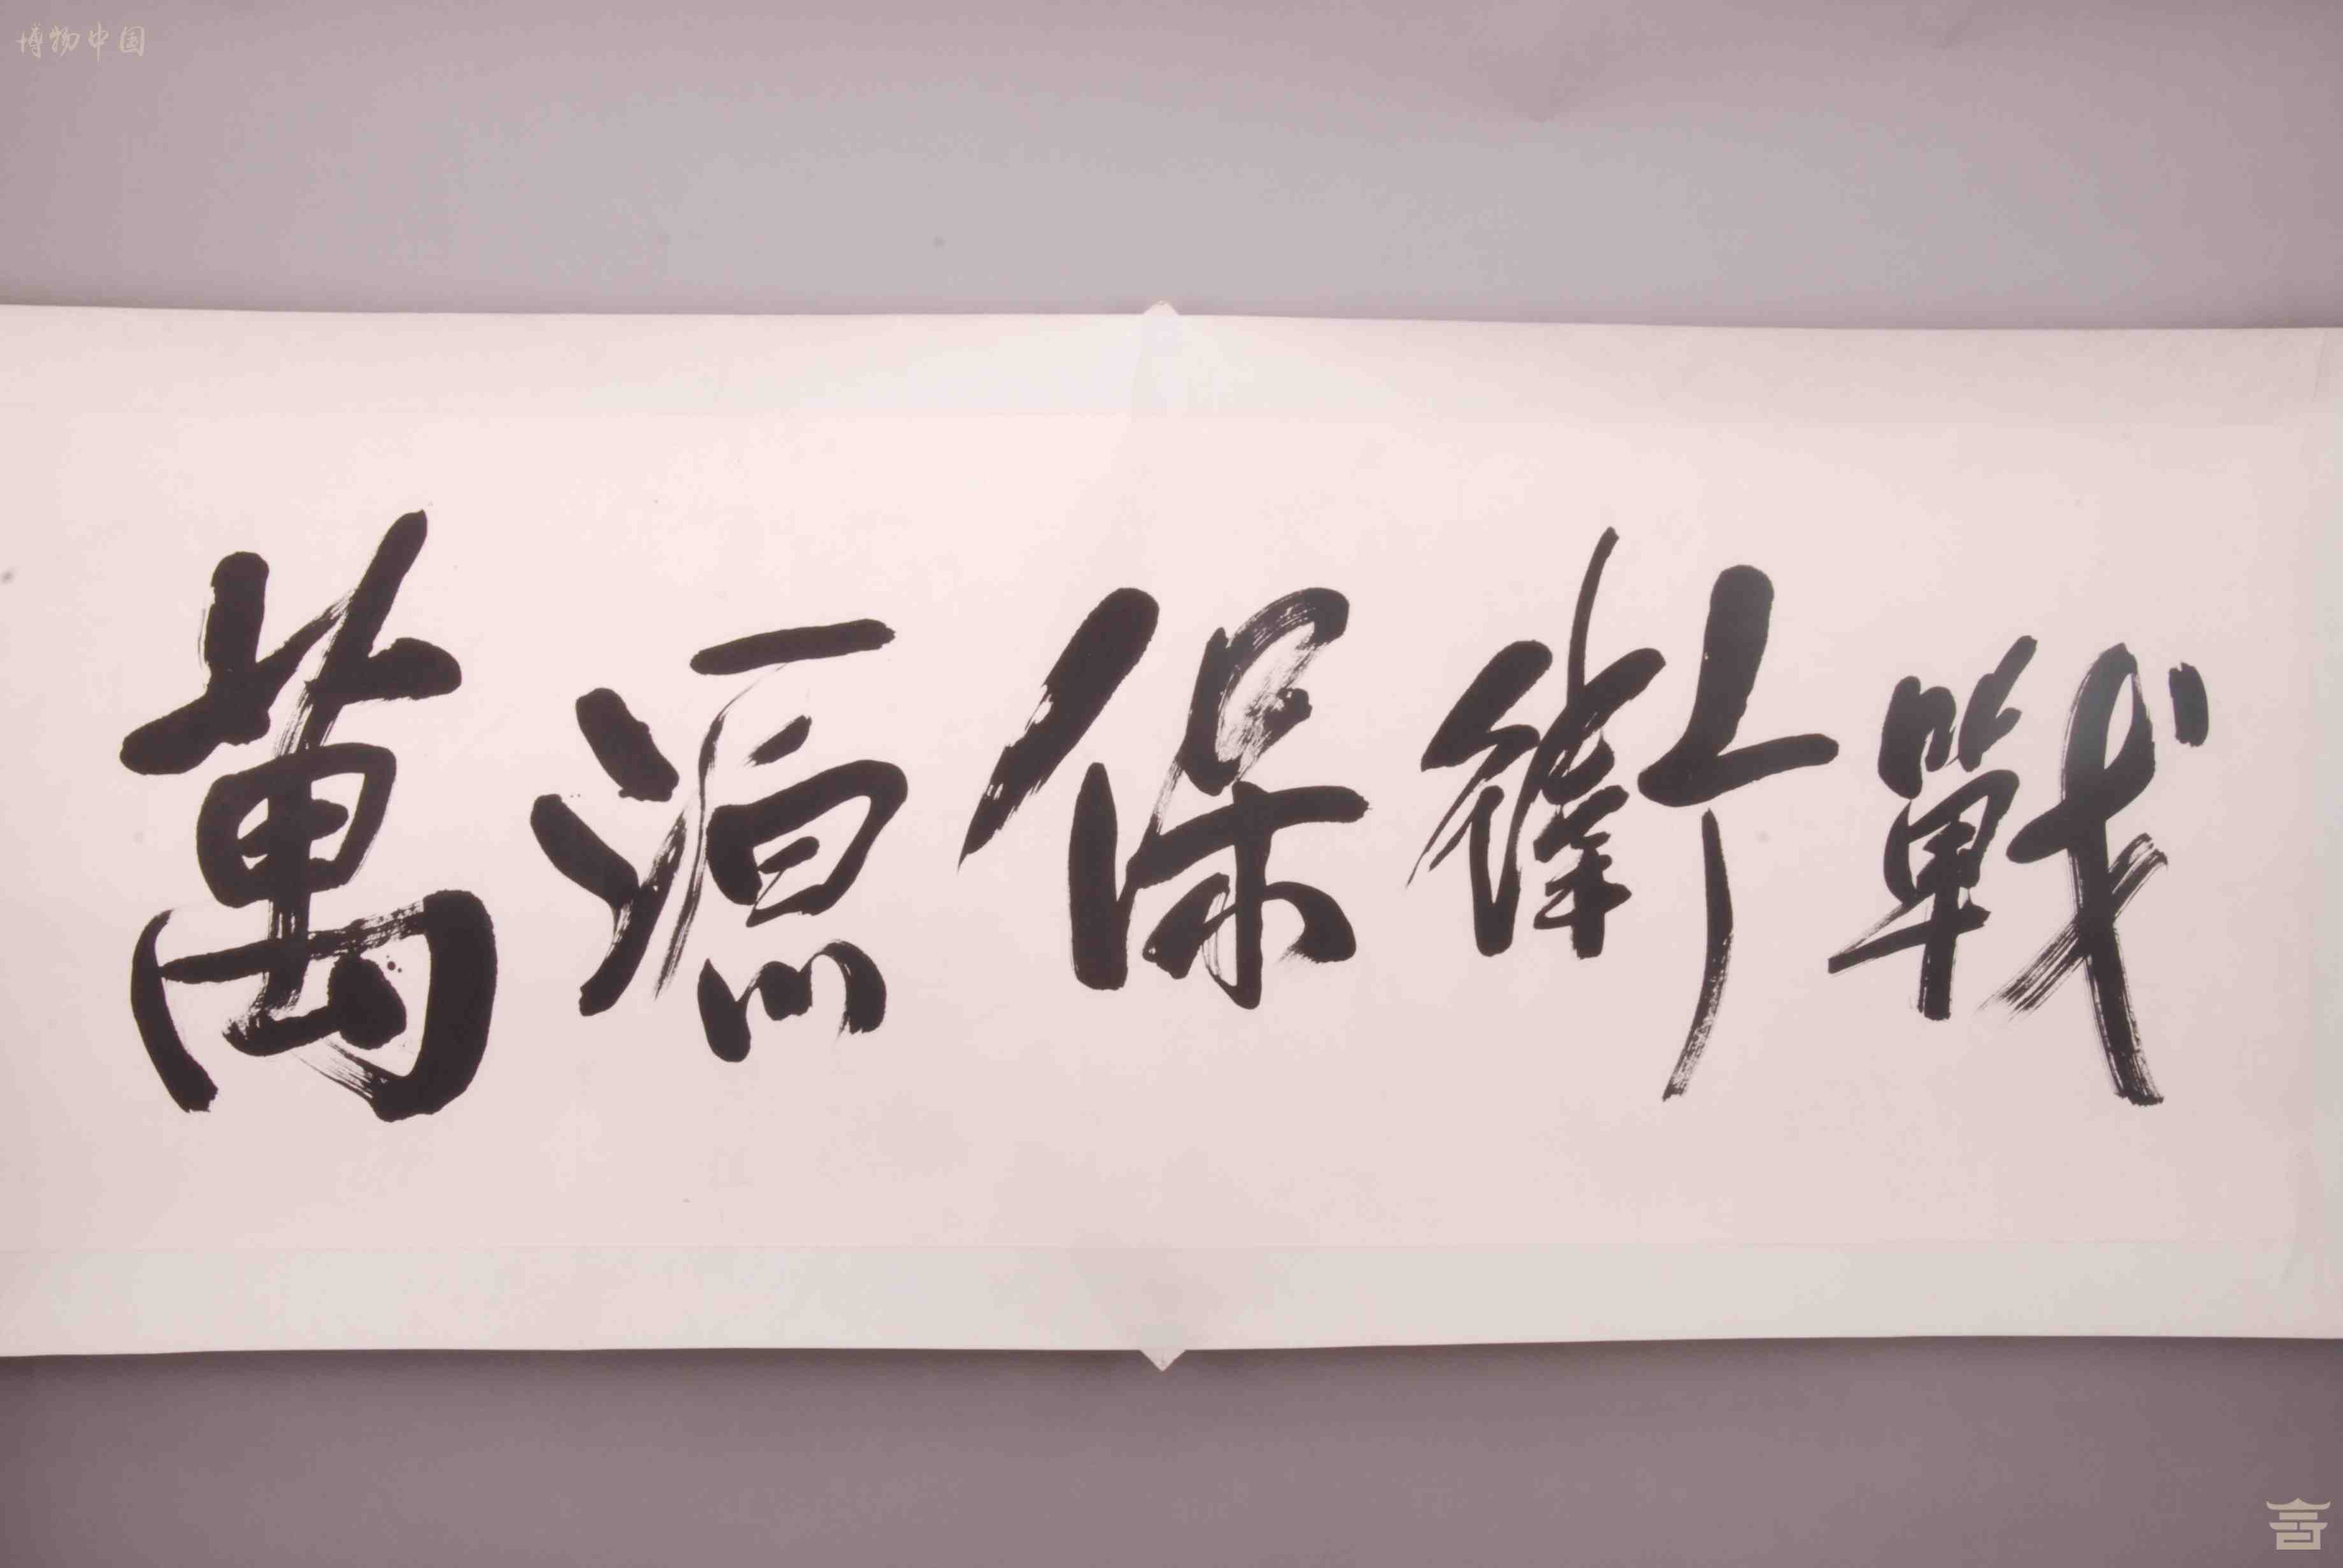 博物中国
萬源保衛戰